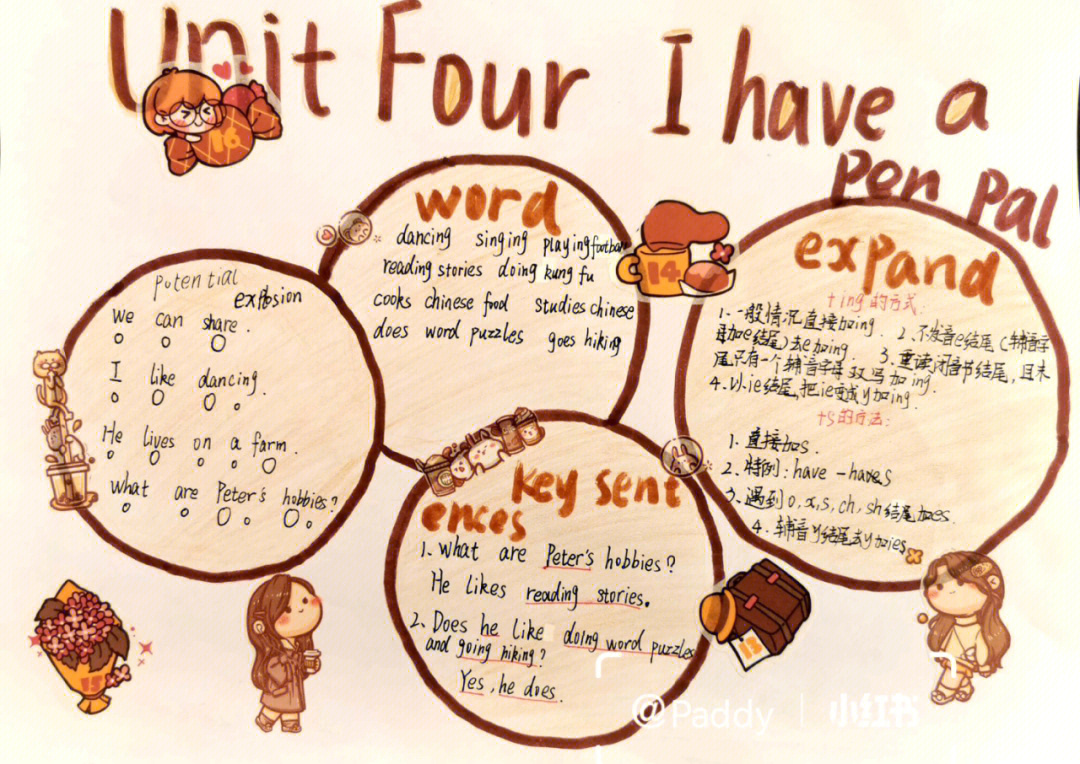 Unit Four I have a
pen pal
word
dancing singing playing football
reading stories doing kung fu
cooks chinese food studies chinese
does word puzzles goes hiking
potential
explosion
we can share.
I like dancing.
He lives on a farm.
what are Peter's hobbies?
key sent
ences
1. What are Peter's hobbies?
He likes reading stories.
2. Does he like doing word puzzles
and going hiking?
Yes, he does.
expand
+ing的方式
1. 一般情况直接加ing. 2. 不发音e结尾(辅音字
母加e结尾)去e加ing. 3. 重读闭音节结尾,且末
尾只有一个辅音字母双写加ing.
4. 以ie结尾,把ie变成y加ing.
+s的方法:
1. 直接加s.
2. 特例: have - haves
3. 遇到o,x,s,ch,sh结尾加es.
4. 辅音y结尾去y加ies
16
14
13
15
@Paddy 小红书